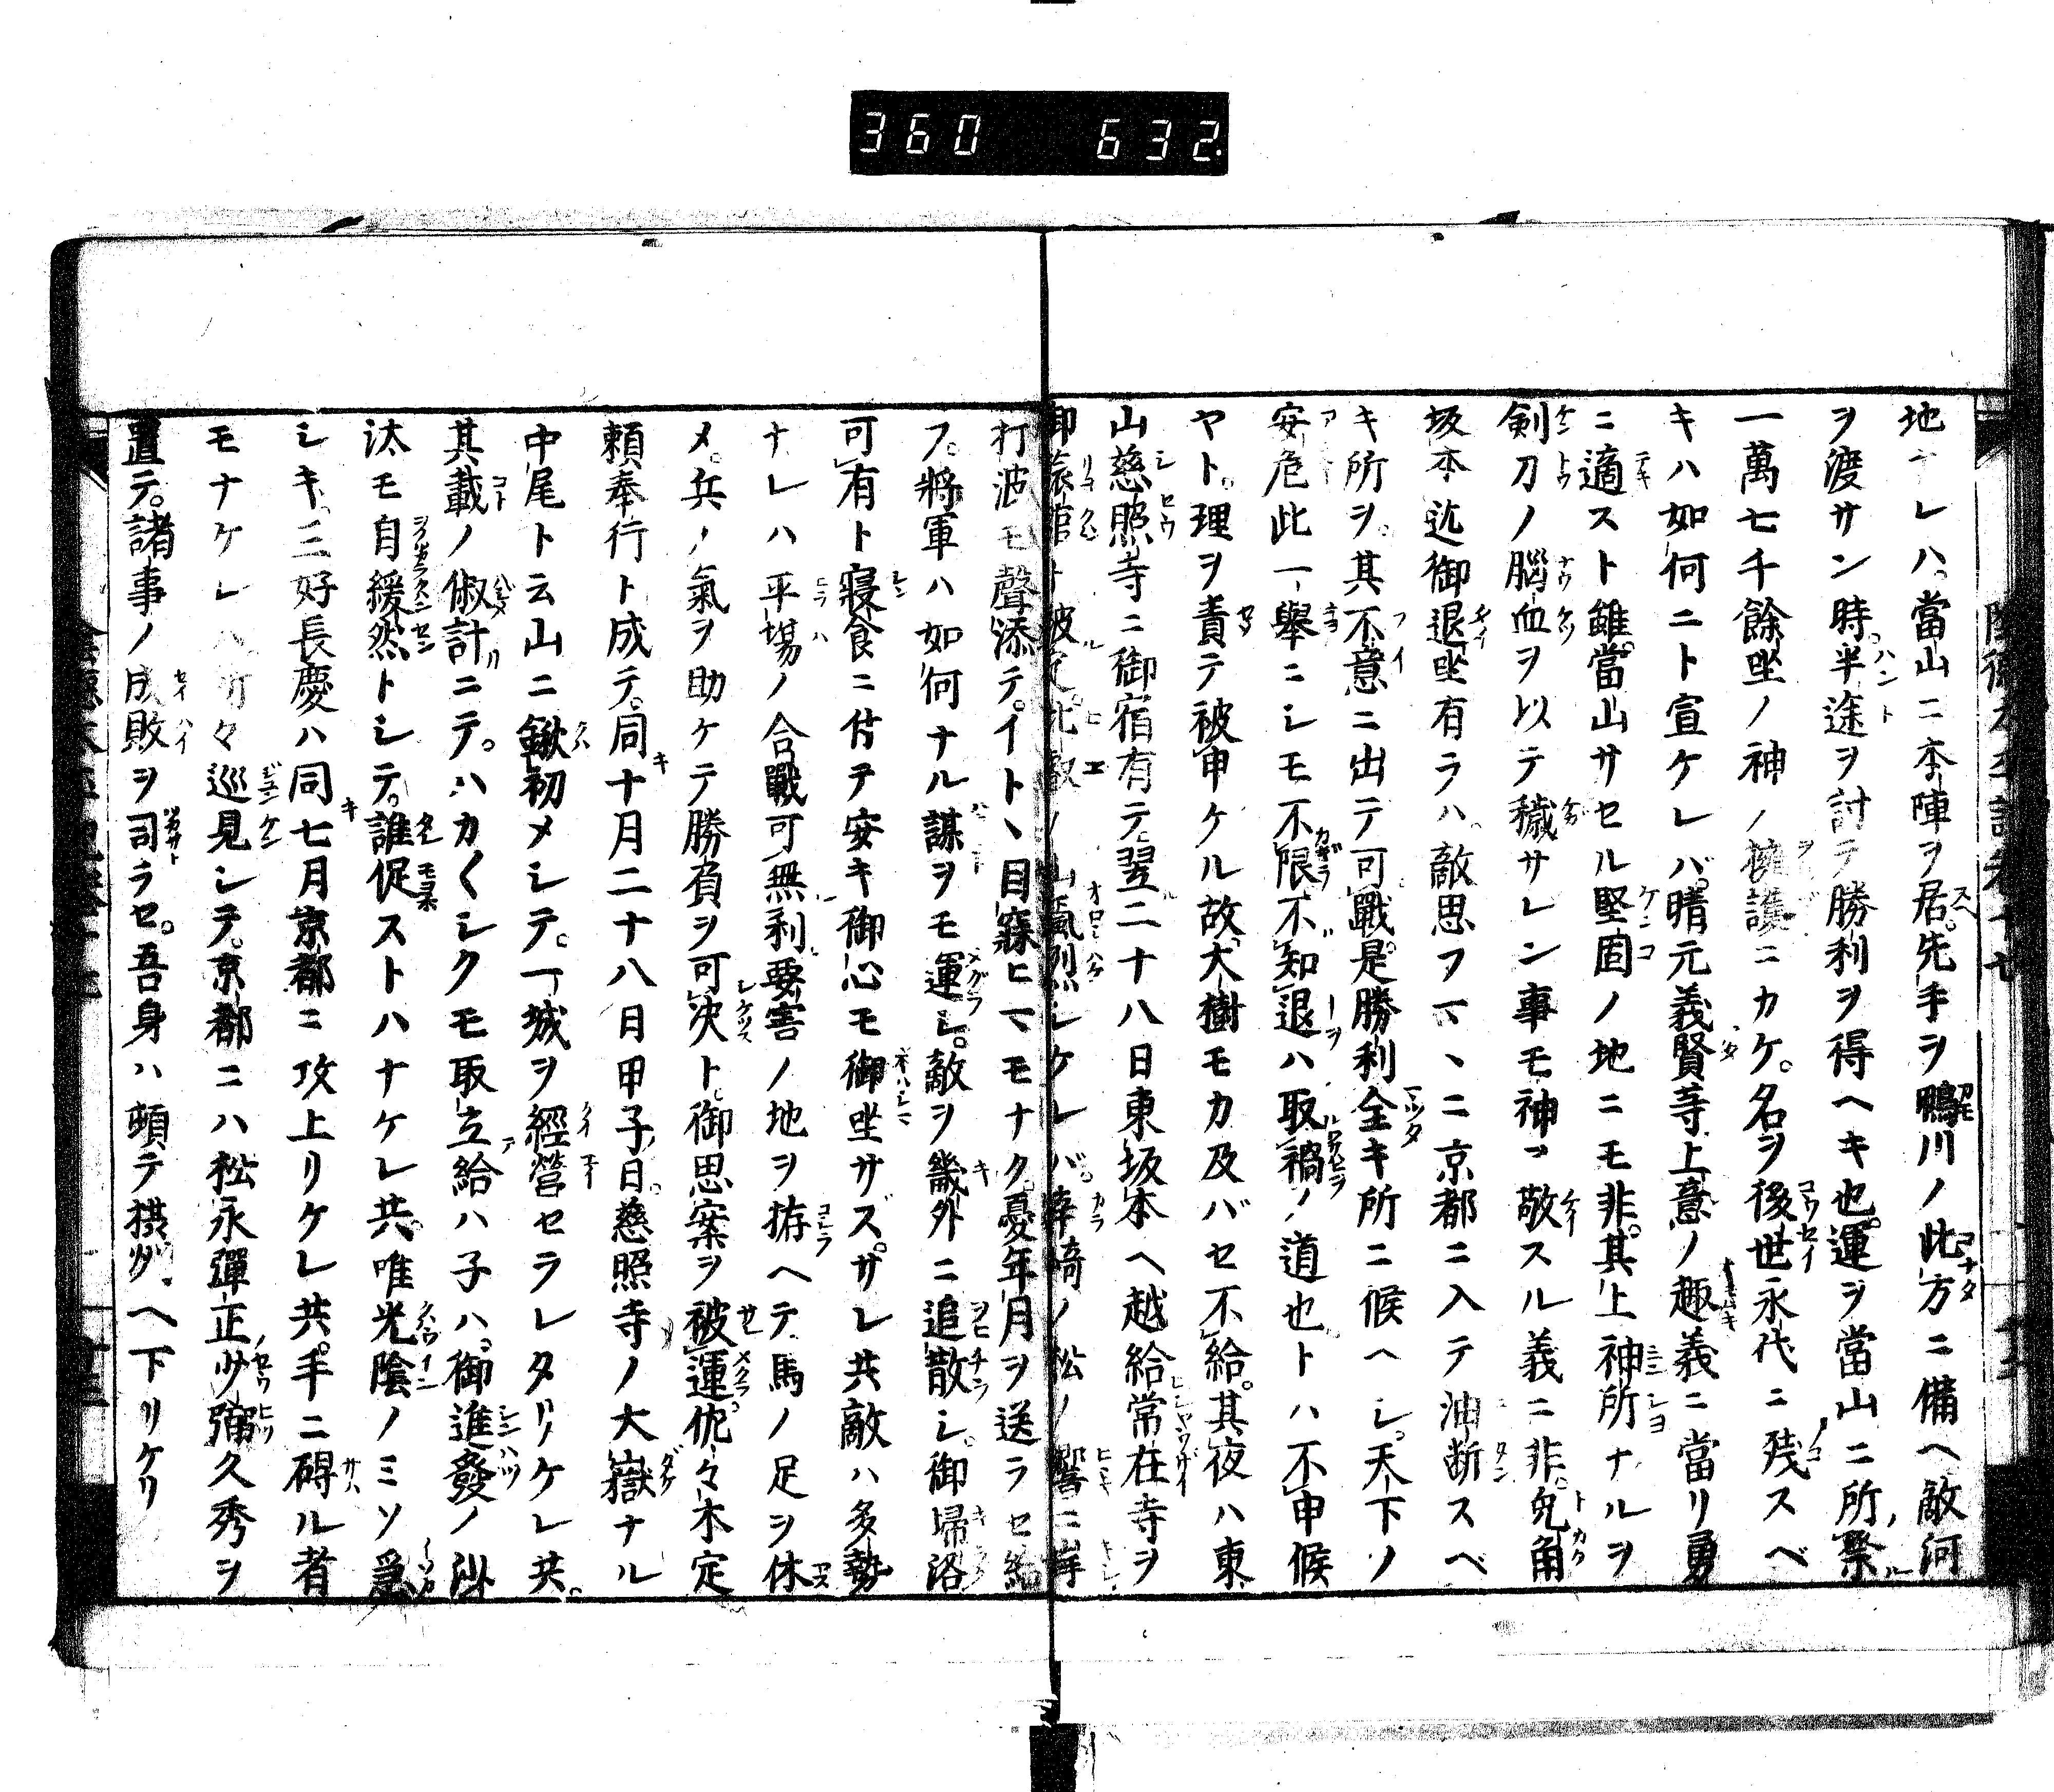 360 632
地ナレハ。當山ニ本陣ヲ居。先手ヲ鴨川ノ此方ニ備ヘ敵河
ヲ渡サン時。半途ヲ討テ勝利ヲ得ヘキ也。運ヲ當山ニ所祭
一萬七千餘坐ノ神ノ擁護ニカケ。名ヲ後世永代ニ残スベ
キハ如何ニト宣ケレバ。晴元義賢等上意ノ趣義ニ當リ勇
ニ適スト雖。當山サセル堅固ノ地ニモ非。其上神所ナルヲ
剣刀ノ腦血ヲ以テ穢サレン事モ神ヲ敬スル義ニ非。兎角
坂本迄御退坐有ラハ。敵思フマヽニ京都ニ入テ油断スベ
キ所ヲ。其不意ニ出テ可戰。是勝利全キ所ニ候ヘシ。天下ノ
安危此一擧ニシモ不限。不知退ハ取禍ノ道也トハ不申候
ヤト。理ヲ責テ被申ケル故。大樹モカ及バセ不給。其夜ハ東
山慈照寺ニ御宿有テ。翌二十八日東坂本ヘ越給常在寺ヲ
御旅館ト被定。比叡ノ山颪烈シケレバ。辛崎ノ松ノ響ニ岸
打波モ聲添テ。イトヽ目寐ヒマモナク。憂年月ヲ送ラセ給
フ。將軍ハ如何ナル謀ヲモ運シ。敵ヲ畿外ニ追散シ。御歸洛
可有ト寢食ニ付テ安キ御心モ御坐サズ。サレ共敵ハ多勢
ナレハ平場ノ合戰可無利要害ノ地ヲ拵ヘテ馬ノ足ヲ休
メ。兵ノ氣ヲ助ケテ勝負ヲ可決ト。御思案ヲ被運。佐々木定
頼奉行ト成テ。同十月二十八日甲子日。慈照寺ノ大嶽ナル
中尾ト云山ニ鍬初メシテ。一城ヲ經營セラレタリケレ共。
其載ノ俶計ニテ。ハカ〱シクモ取立給ハ子ハ。御進發ノ沙
汰モ自緩然トシテ。誰促ストハナケレ共。唯光陰ノミソ爲
シキ。三好長慶ハ同七月京都ニ攻上リケレ共。手ニ碍ル者
モナケレハ所々巡見シテ。京都ニハ松永彈正少弼久秀ヲ
置テ。諸事ノ成敗ヲ司ラセ。吾身ハ頓テ摂州ヘ下リケリ